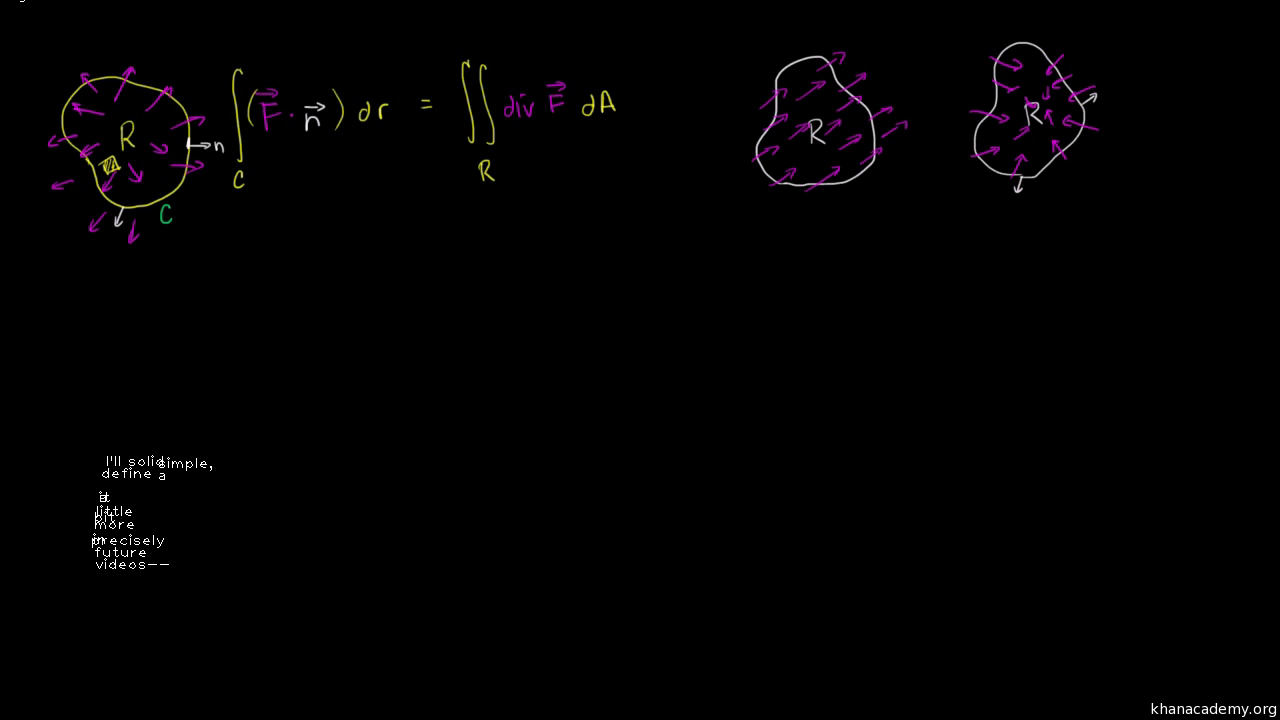 R n C
∫_C (F⃗ · n⃗) dr = ∬_R div F⃗ dA
R
R
I'll solid simple,
define a
it
little
bit
more
precisely
in
future
videos--
khanacademy.org